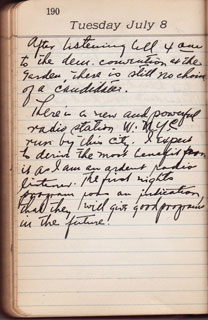 190
Tuesday July 8
After listening till 4 am
to the dem. convention at the
Garden, there is still no choice
of a candidate.
There is a new and powerful
radio station W.NYC
run by this city. I expect
to derive the most benefit from
it as I am an ardent radio
listener. The first nights
program was an indication
that they will give good programs
in the future.